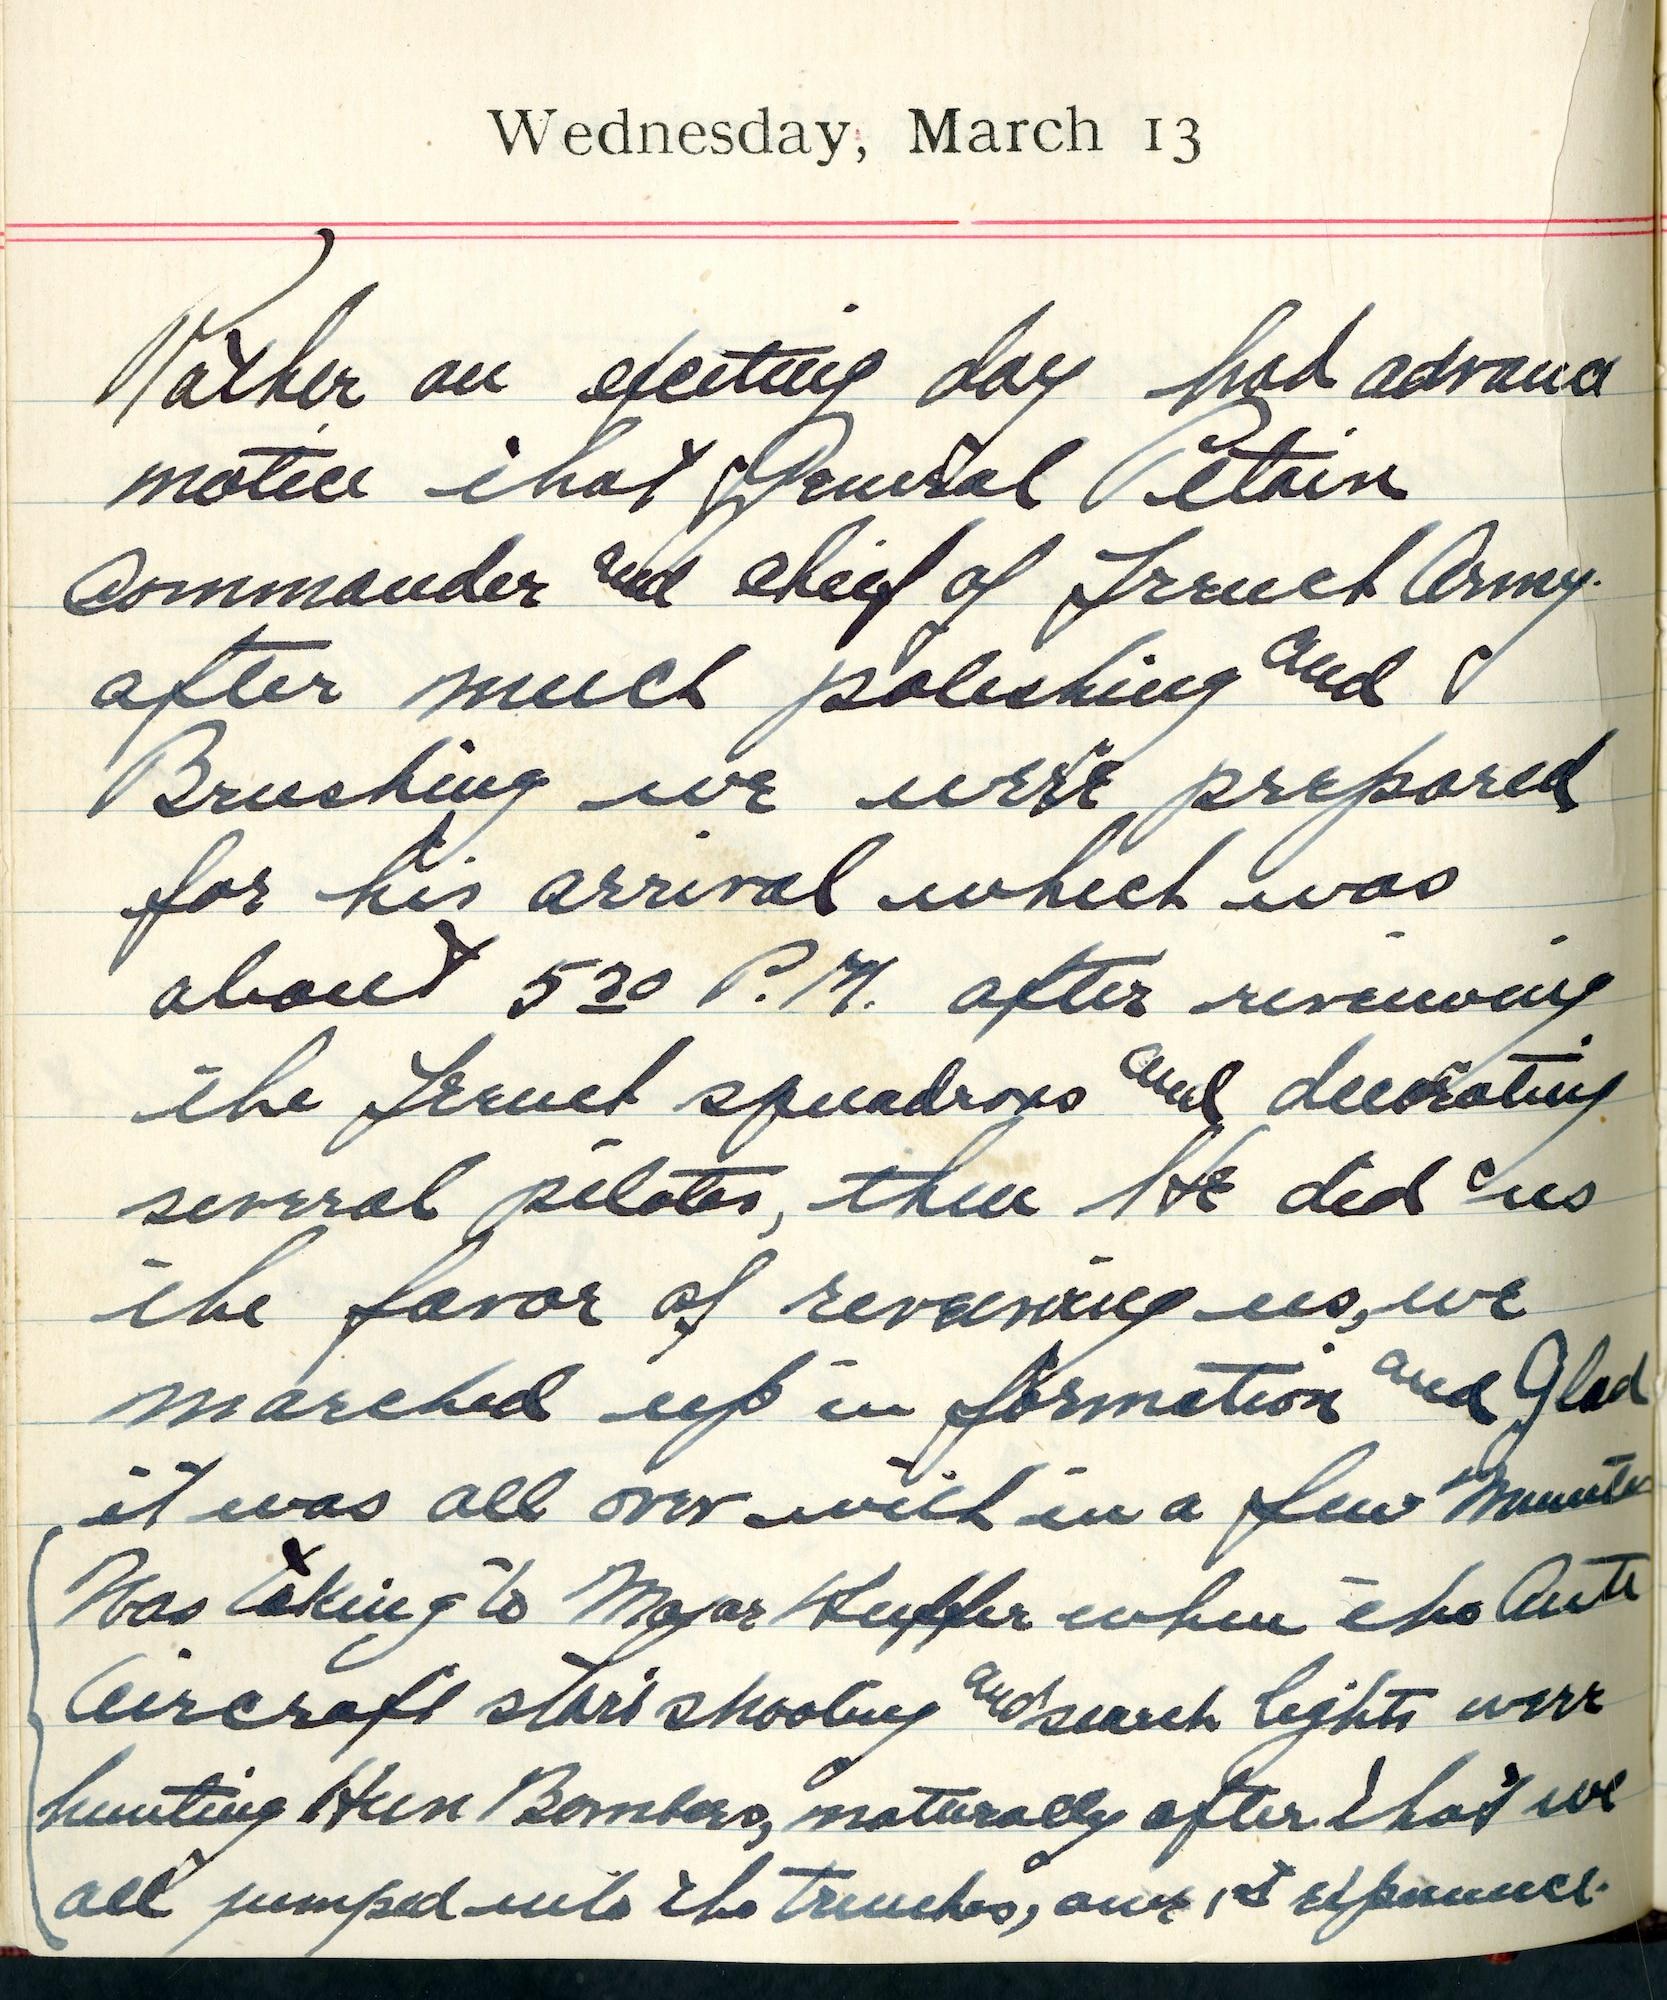 Wednesday, March 13
Rather an exciting day had advance
notice that General Petain
Commander and chief of French Army.
after much polishing and
Brushing we were prepared
for his arrival which was
about 5 30 P.M. after reviewing
the French squadrons and decorating
several pilotes, then He did us
the favor of reveiwing us, we
marched up in formation and Glad
it was all over with in a few minutes
Was talking to Major Huffer when the Anti
Aircraft start shooting and search lights were
hunting Hun Bombers, naturally after that we
all jumped into the trenches, our 1st experience.